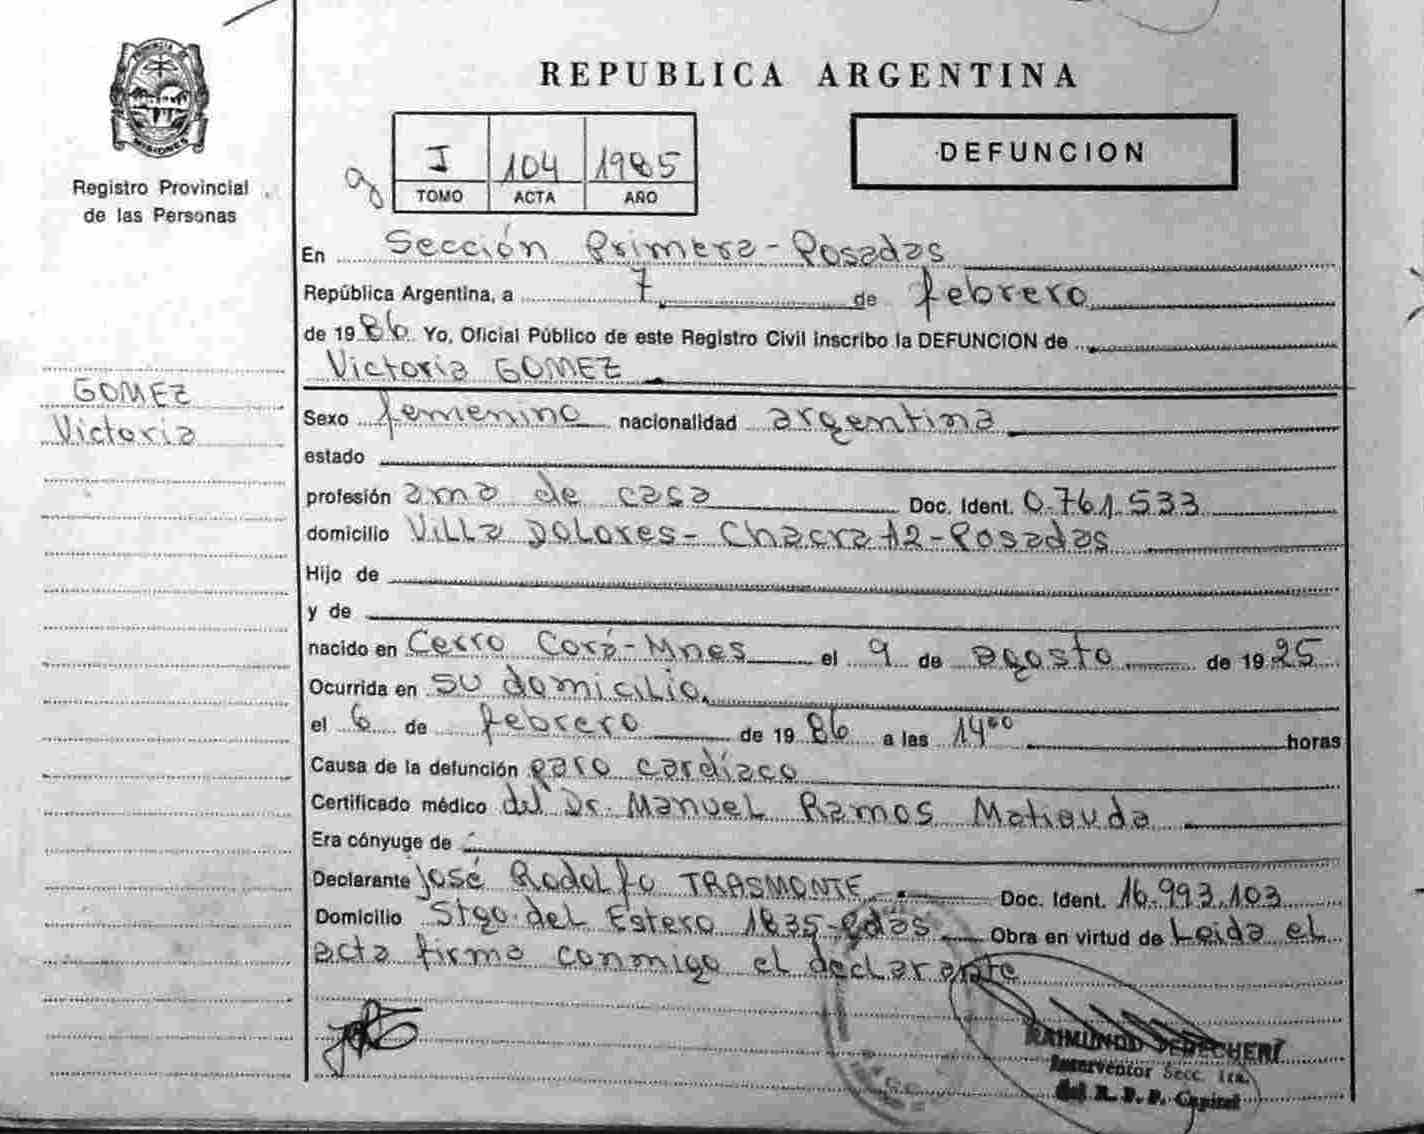 REPUBLICA ARGENTINA
MISIONES
Registro Provincial
de las Personas
I 104 1985
TOMO ACTA AÑO
DEFUNCION
En Sección Primera-Posadas
República Argentina, a 7 de febrero
de 1986 Yo, Oficial Público de este Registro Civil inscribo la DEFUNCION de
Victoria GOMEZ
GOMEZ
Victoria
Sexo femenino nacionalidad argentina
estado
profesión ama de casa Doc. Ident. 0.761.533
domicilio Villa Dolores- Chacra 12-Posadas
Hijo de
y de
nacido en Cerro Corá-Mnes el 9 de agosto de 1925
Ocurrida en su domicilio.
el 6 de febrero de 1986 a las 14⁰⁰ horas
Causa de la defunción paro cardíaco
Certificado médico del Dr. Manuel Ramos Matiauda
Era cónyuge de
Declarante José Rodolfo TRASMONTE Doc. Ident. 16.993.103
Domicilio Stgo. del Estero 1835-Pdas Obra en virtud de Leida el
acta firma conmigo el declarante
RAIMUNDO
Interventor Secc. 1ra.
del R. P. P. Capital